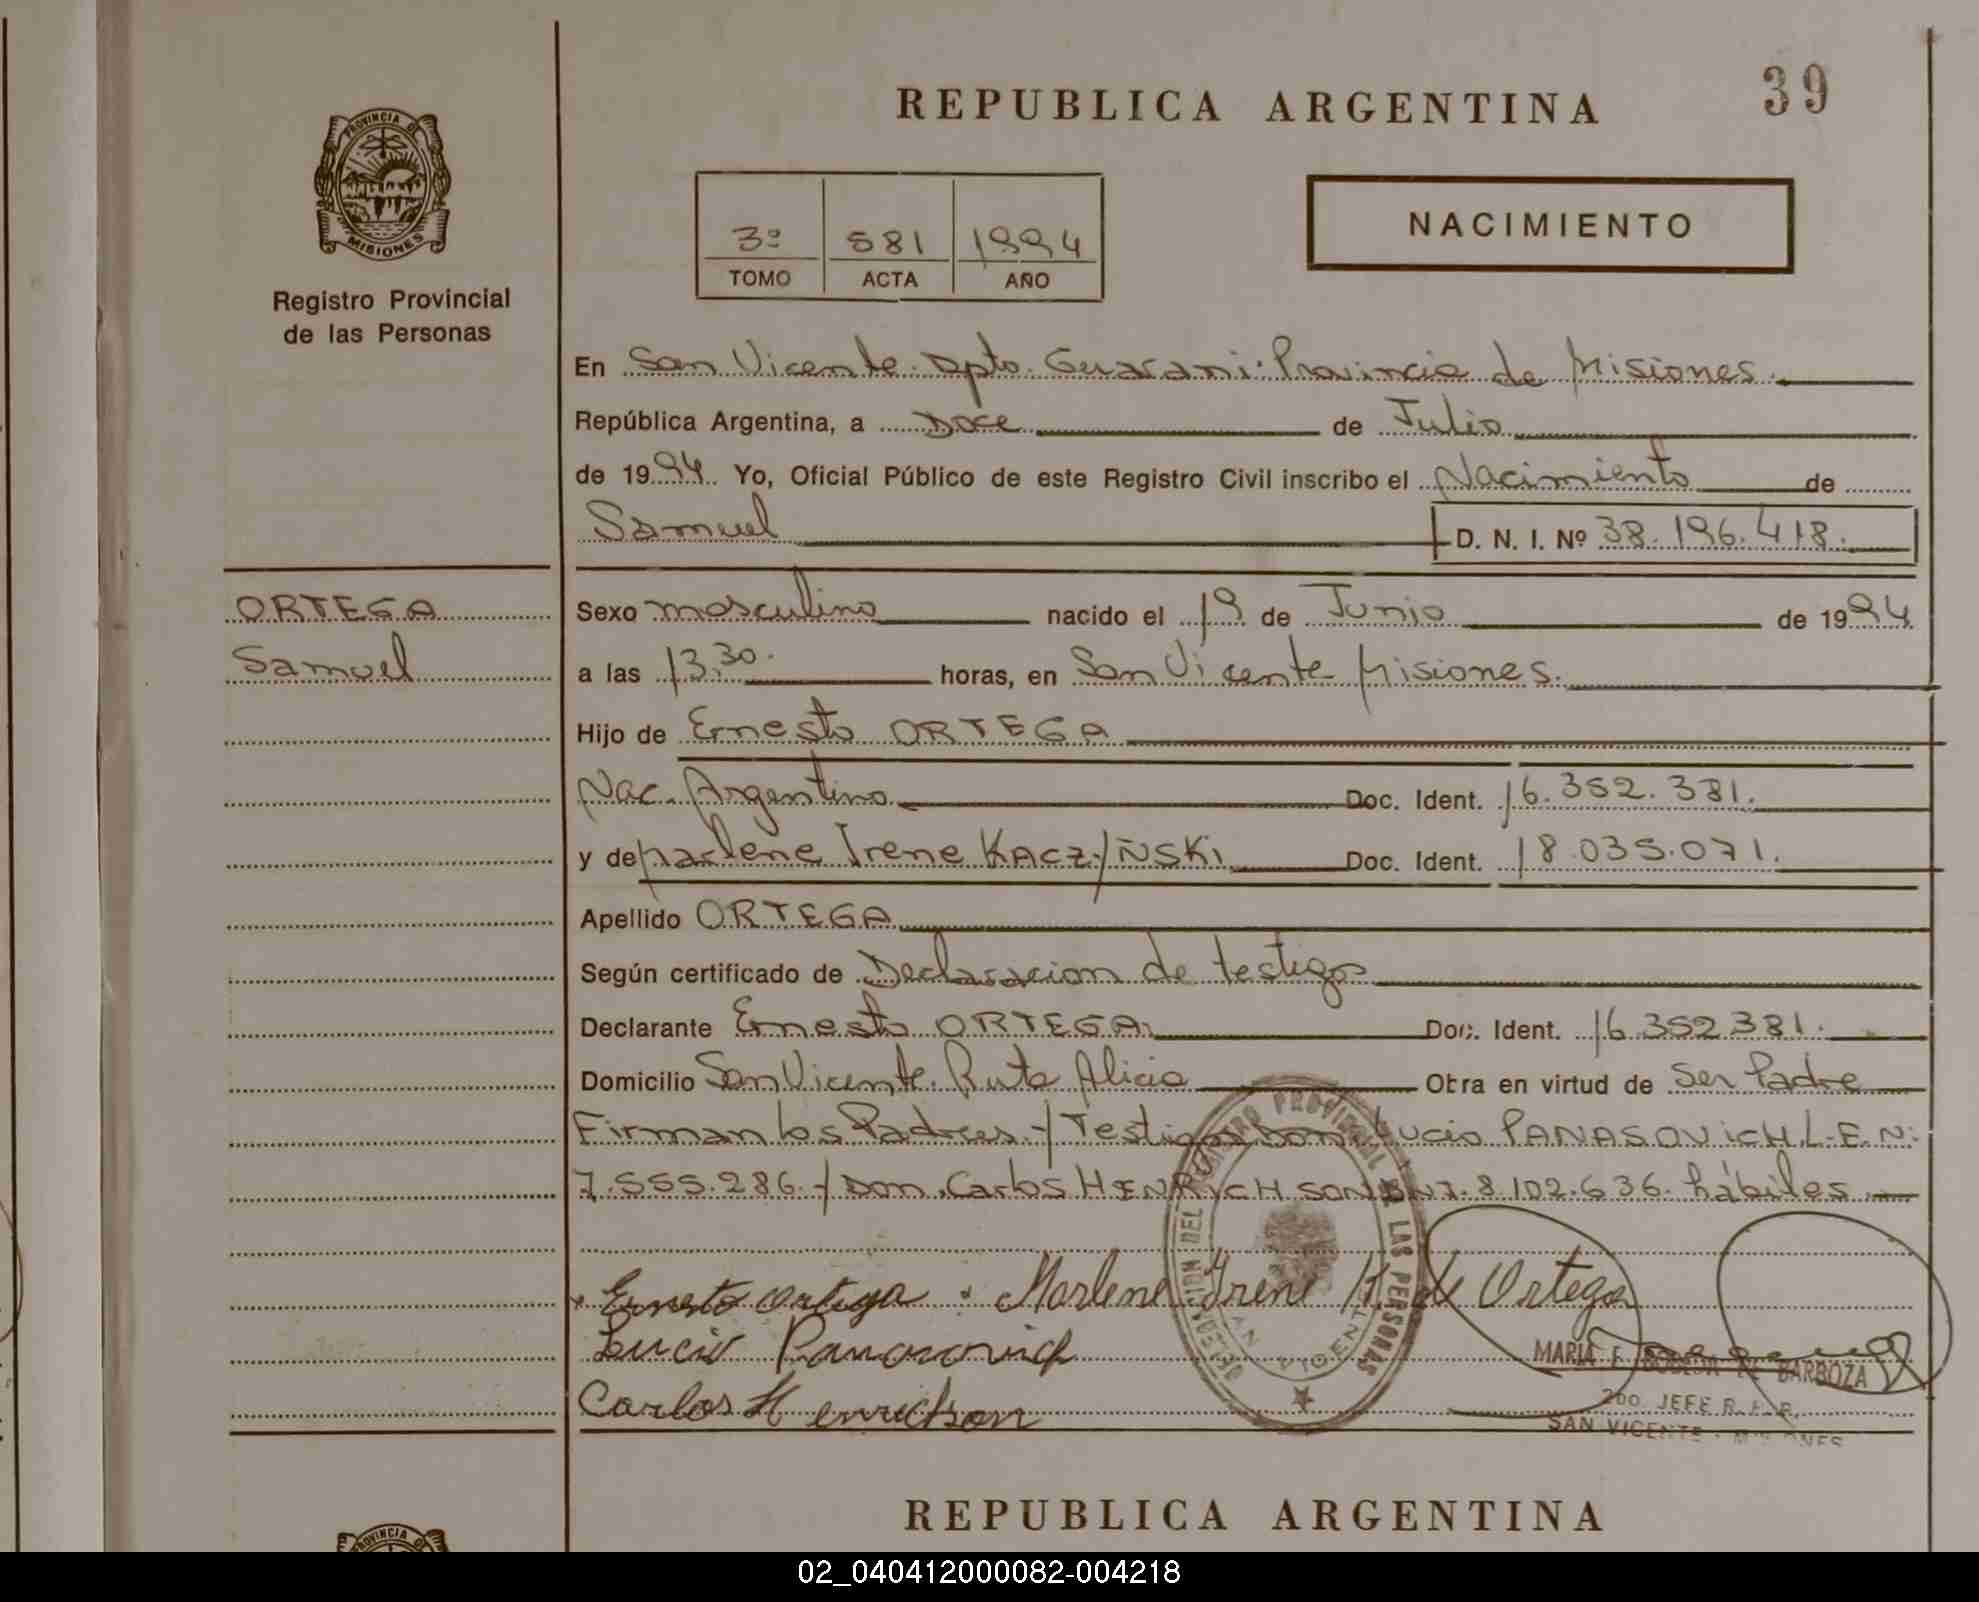 REPUBLICA ARGENTINA
39
PROVINCIA DE
MISIONES
Registro Provincial
de las Personas
3º 581 1994
TOMO ACTA AÑO
NACIMIENTO
En San Vicente. Dpto. Guarani. Provincia de Misiones.
República Argentina, a Doce de Julio
de 1994. Yo, Oficial Público de este Registro Civil inscribo el Nacimiento de
Samuel D. N. I. Nº 38.196.418.
ORTEGA
Samuel
Sexo masculino nacido el 19 de Junio de 1994
a las 13.30. horas, en San Vicente Misiones.
Hijo de Ernesto ORTEGA
Nac. Argentino Doc. Ident. 16.352.381.
y de Marlene Irene KACZYÑSKi Doc. Ident. 18.035.071.
Apellido ORTEGA
Según certificado de Declaracion de testigos
Declarante Ernesto ORTEGA. Doc. Ident. 16.352.381.
Domicilio San Vicente. Ruta Alicia Obra en virtud de Ser Padre
Firman los Padres-/ Testigos Don. Lucio PANASOViCH L.E.N:
7.555.286-/ Don. Carlos HENRiCHSON 8.102.636. hábiles.
Ernesto Ortega Marlene Irene K. de Ortega
Lucio Panasovich
Carlos Henrichson
DELEGACION DEL REGISTRO PROVINCIAL DE LAS PERSONAS
SAN VICENTE
MARIA F. DE BARBOZA
2DO. JEFE R. P. P.
SAN VICENTE - MISIONES
REPUBLICA ARGENTINA
PROVINCIA DE
02_040412000082-004218